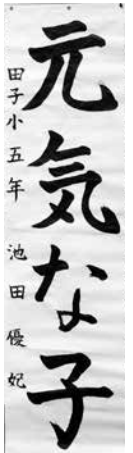 元気な子
田子小五年 池田優妃